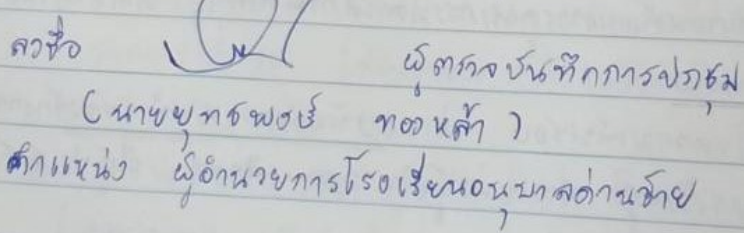 ลงชื่อ ผู้ตรวจบันทึกการประชุม
(นายยุทธพงษ์ ทองหล้า)
ตำแหน่ง ผู้อำนวยการโรงเรียนอนุบาลด่านซ้าย